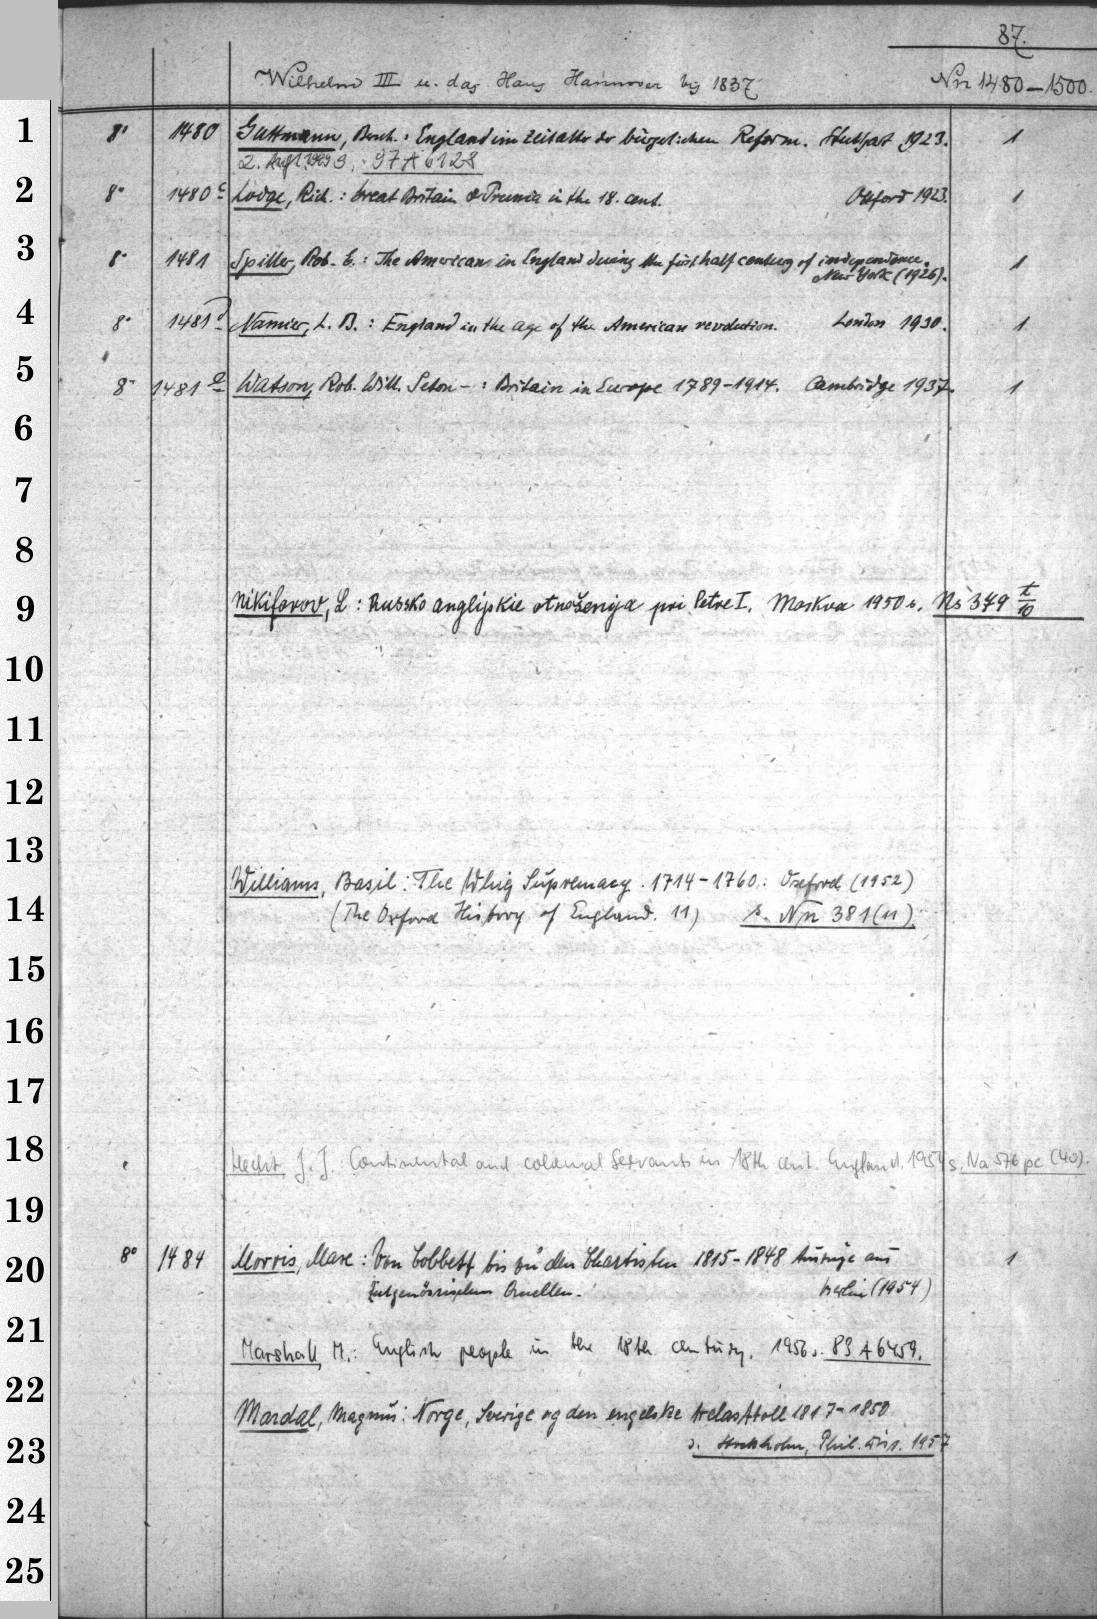 87.
Wilhelm III u. das Haus Hannover bis 1837
Nn 1480–1500.
1 8° 1480 Guttmann, Bernh.: England im Zeitalter der bürgerlichen Reform. Stuttgart 1923. 1
2. Aufl. 1949 s. 97 A 6128
2 8° 1480 c Lodge, Rich.: Great Britain & Prussia in the 18. cent. Oxford 1923. 1
3 8° 1481 Spiller, Rob. E.: The American in England during the first half century of independence.
New York (1926). 1
4 8° 1481 d Namier, L. B.: England in the age of the American revolution. London 1930. 1
5 8° 1481 e Watson, Rob. Will. Seton–: Britain in Europe 1789–1914. Cambridge 1937. 1
6
7
8
9 Nikiforov, L: Russko anglijskie otnošenija pri Petre I. Moskva 1950 s. Ns 379 t/10
10
11
12
13
Williams, Basil: The Whig Supremacy. 1714–1760: Oxford (1952)
14 (The Oxford History of England. 11) s. Nn 381(11).
15
16
17
18 Hecht, J. J. Continental and colonial Servants in 18th cent. England. 1954 s. Na 576 pc (40).
19
20 8° 1484 Morris, Max: Von Cobbett bis zu den Chartisten 1815–1848 Auszüge aus 1
zeitgenössischen Quellen. Berlin (1954)
21 Marshall, M.: English people in the 18th century. 1956 s. 83 A 6459.
22 Mardal, Magnus: Norge, Sverige og den engelske trelasttoll 1817–1850
23 s. Stockholm, Phil. Diss. 1957
24
25